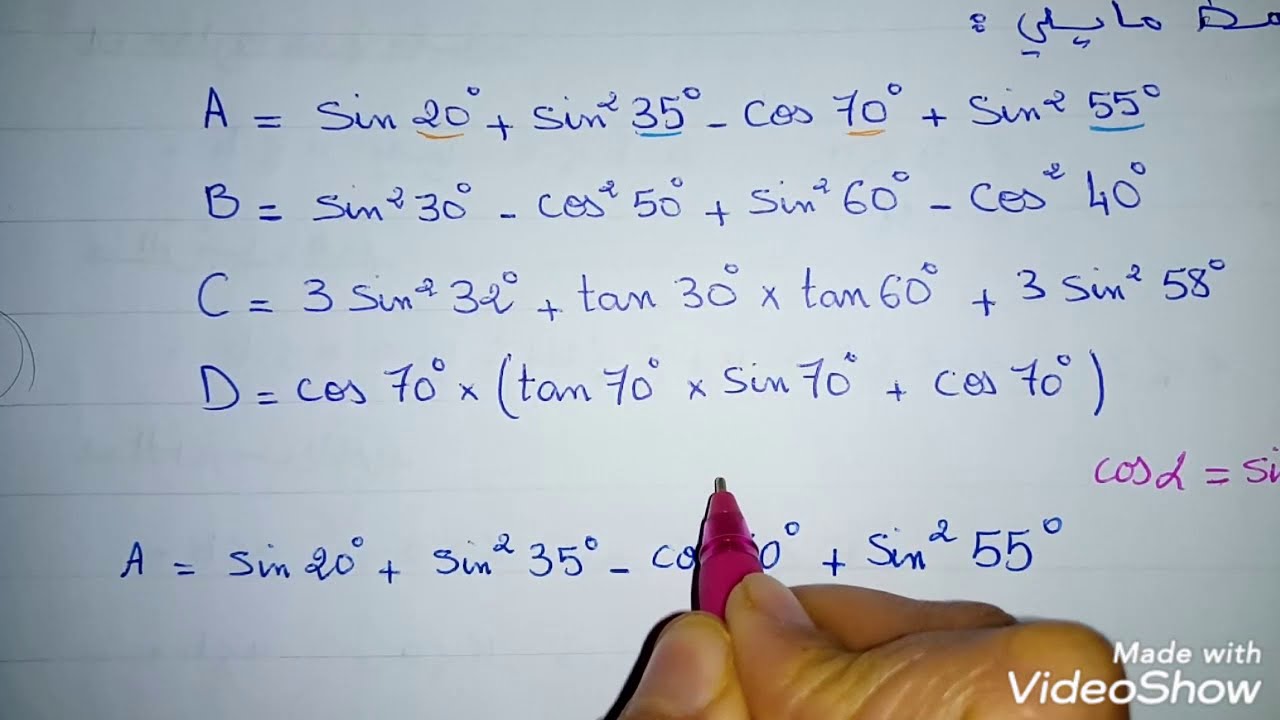 ما يلي :
A = sin 20° + sin² 35° - cos 70° + sin² 55°
B = sin² 30° - cos² 50° + sin² 60° - cos² 40°
C = 3 sin² 32° + tan 30° × tan 60° + 3 sin² 58°
D = cos 70° × (tan 70° × sin 70° + cos 70°)
cos α = si
A = sin 20° + sin² 35° - co 0° + sin² 55°
Made with
VideoShow